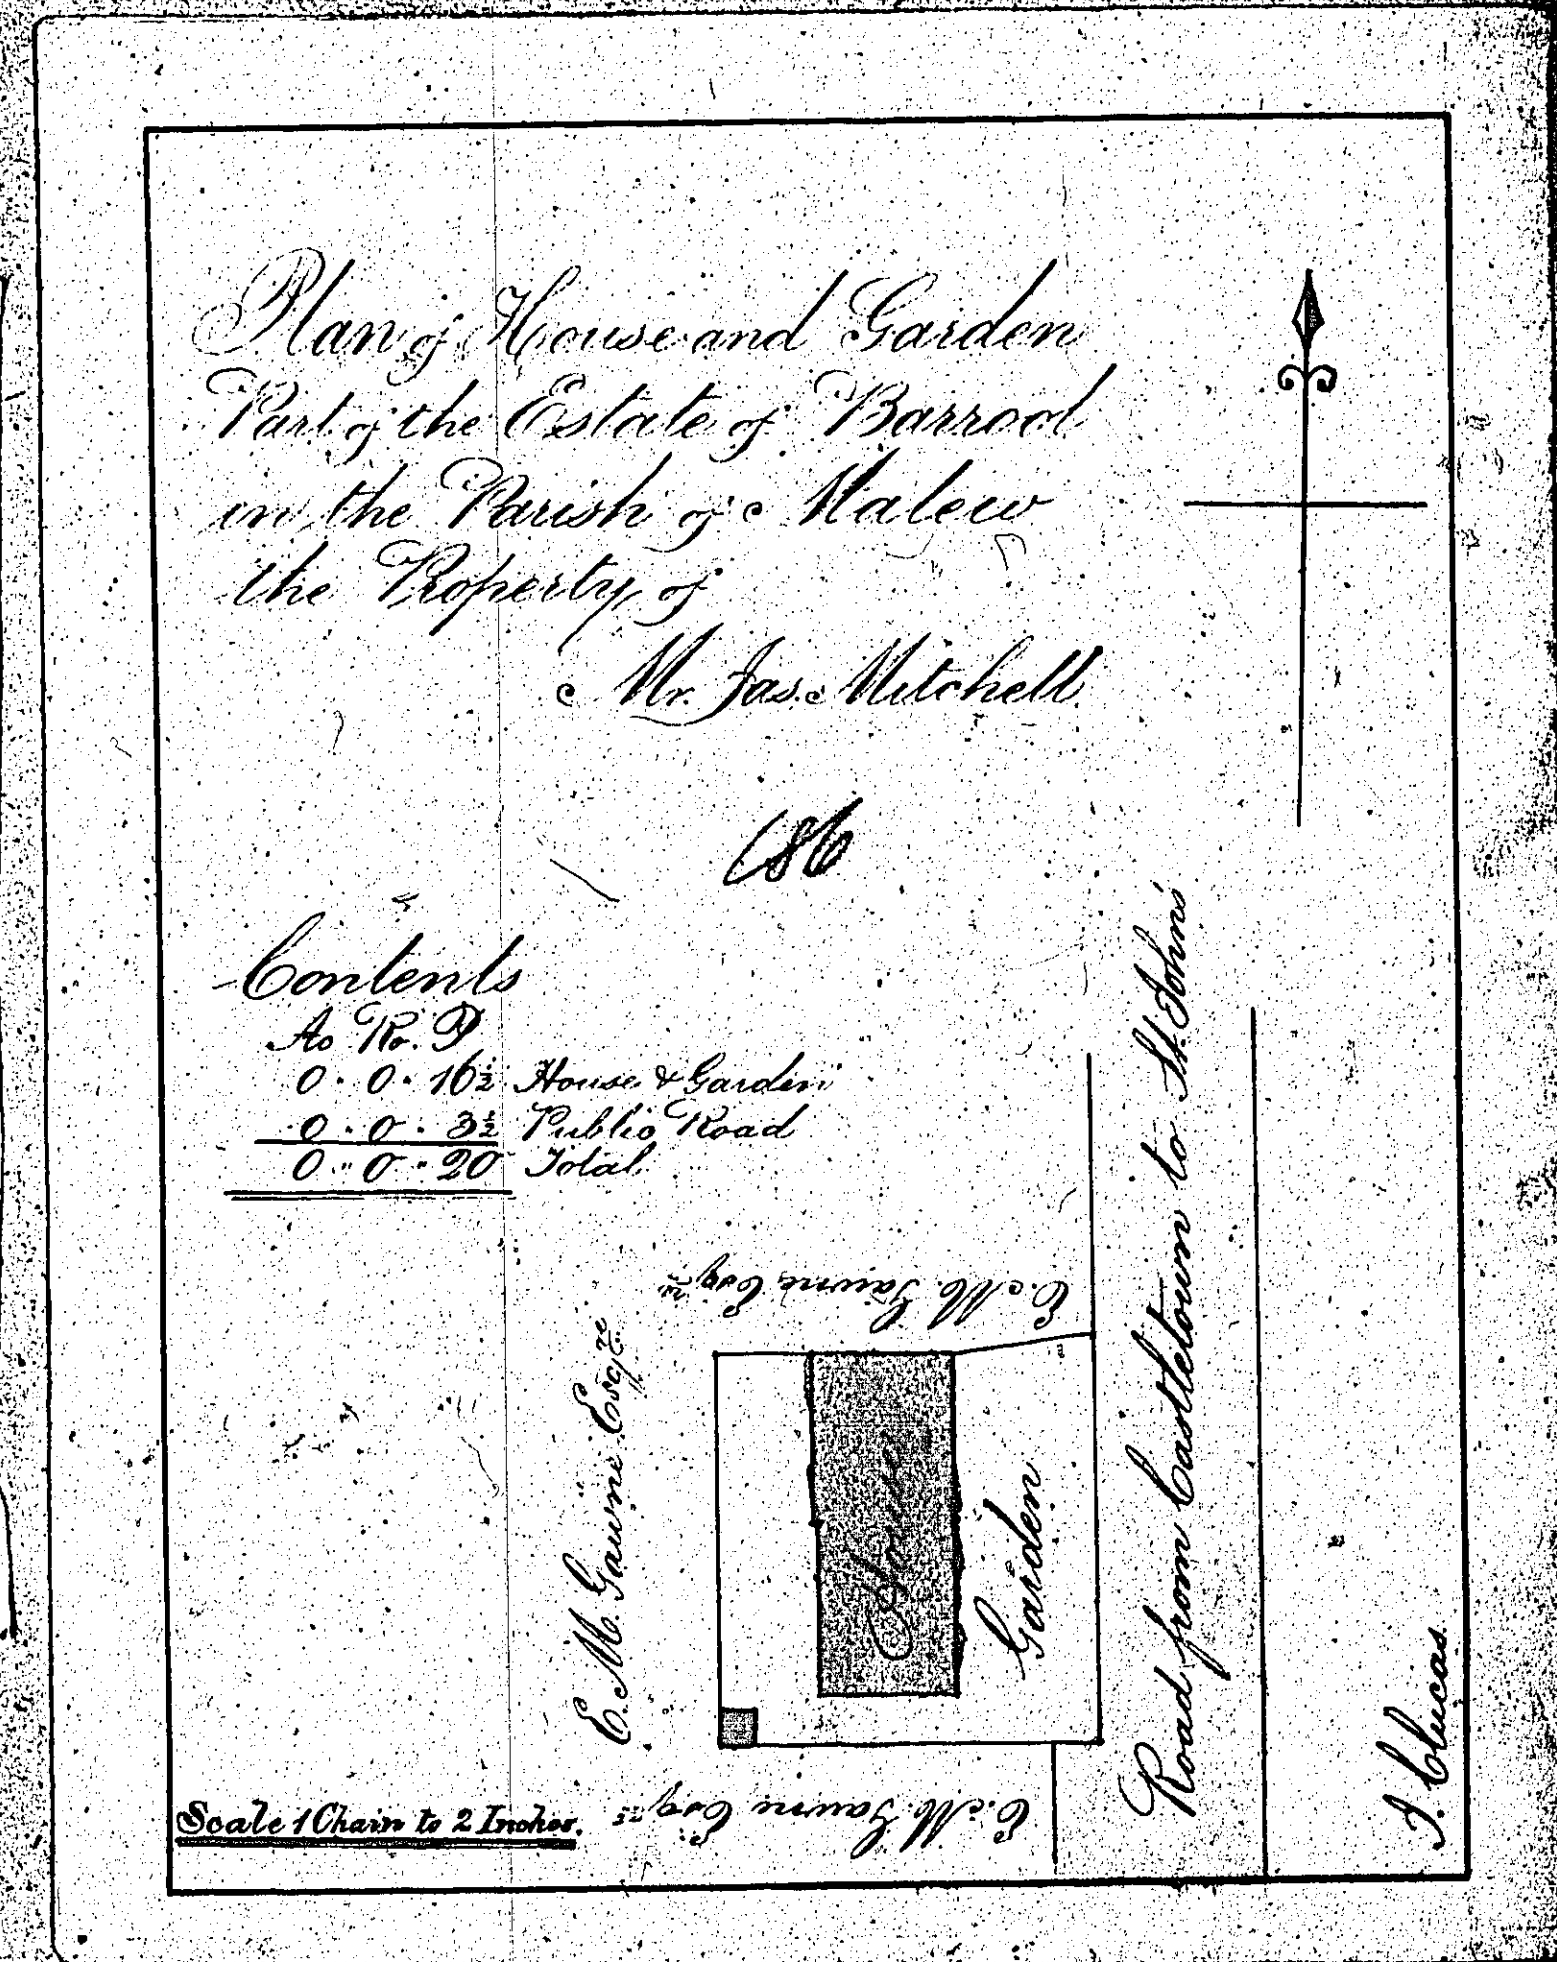 Plan of House and Garden
Part of the Estate of Barrool
in the Parish of Malew
the Property of
Mr. Jas. Mitchell.
186
Contents
Ac Ro. P
0 . 0 . 16½ House & Garden
0 . 0 . 3½ Public Road
0 .. 0 .. 20 Total.
E. M. Gawne Esqre
E. M. Gawne Esqre
House
Garden
Road from Castletown to St. Johns
E. M. Gawne Esqre
Scale 1 Chain to 2 Inches.
J. Clucas.